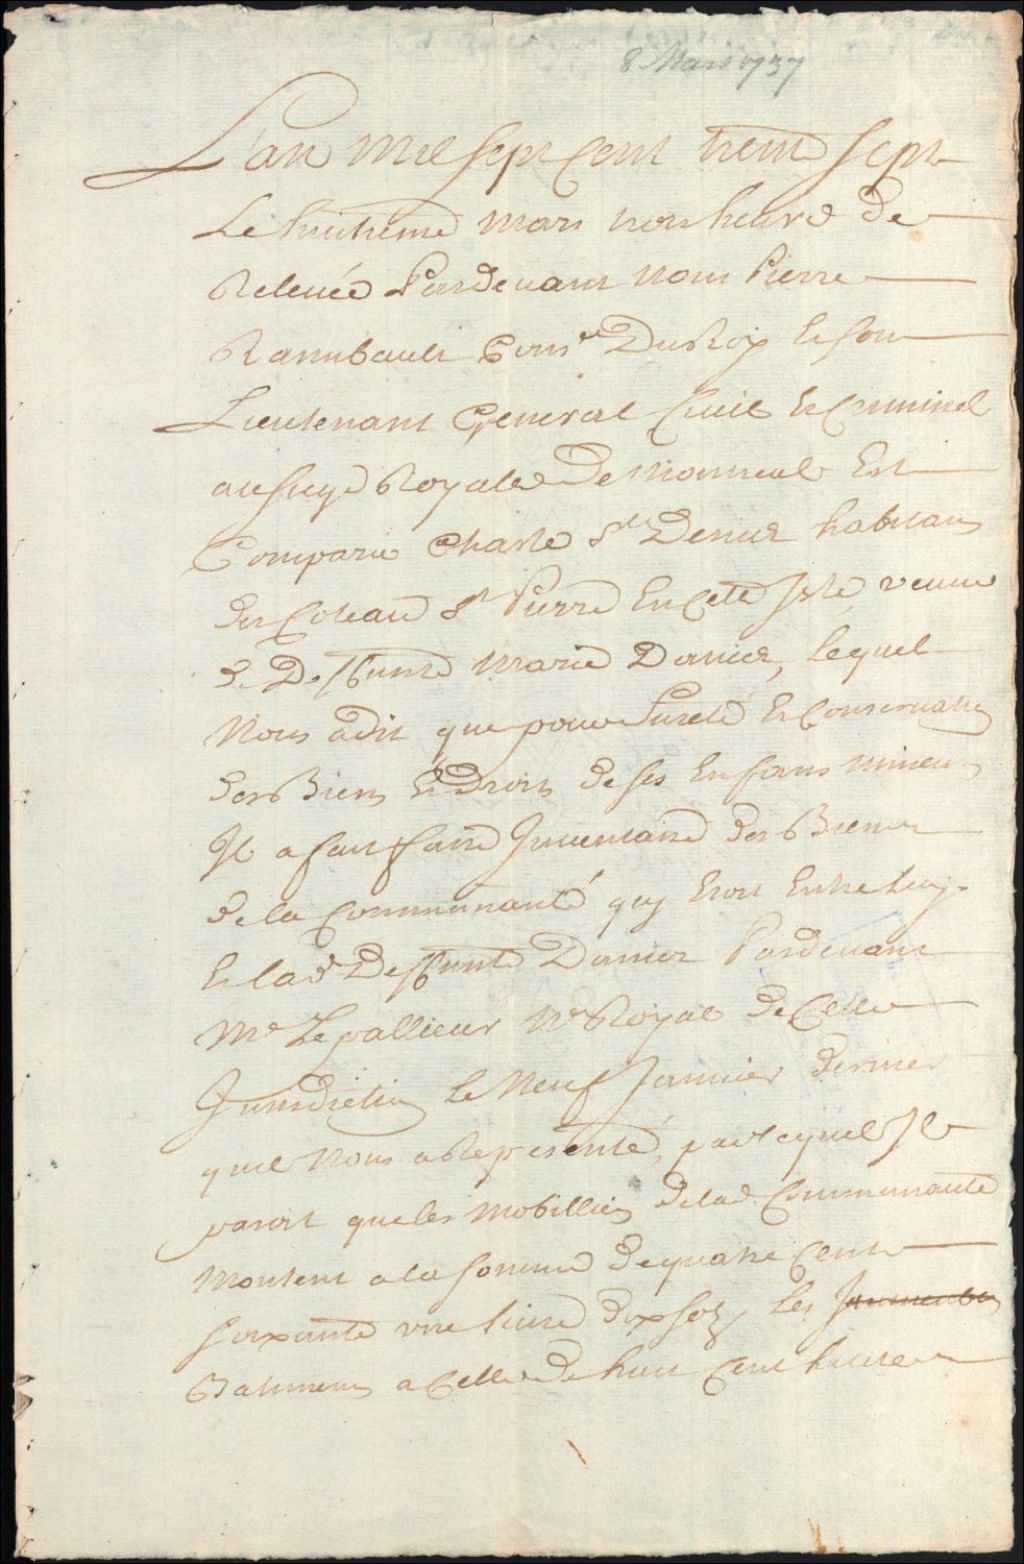 8 Mars 1737
L'an mil sept Cent trente sept
Le huitieme mars trois heure de
Relevée Pardevant nous Pierre
Raimbault Cons.er Du Roy et son
Lieutenant General Civil et Criminel
au siege Royalle De Montreal Est
Comparu Charle St Denis habitant
des Coteau St Pierre En Cette Isle veuve
de Deffunte Marie Danier, lequel
Nous a dit que pour Sureté et Conservation
des Biens et Droits de ses Enfans mineurs
Il a fait faire Inventaire des Biens
de la Communauté quy Etoit Entre luy
et lad.e Deffunte Danier Pardevant
Me Lepallieur Nre Royal de Cette
Jurisdiction le Neuf Janvier dernier
quil Nous a Representé, par lequel Il
paroit que les mobilliers de lad.e Communauté
montent a la somme de quatre Cent
soixante une livre dix solz, les Immeubles
Batimens a Celle de huit Cent livres